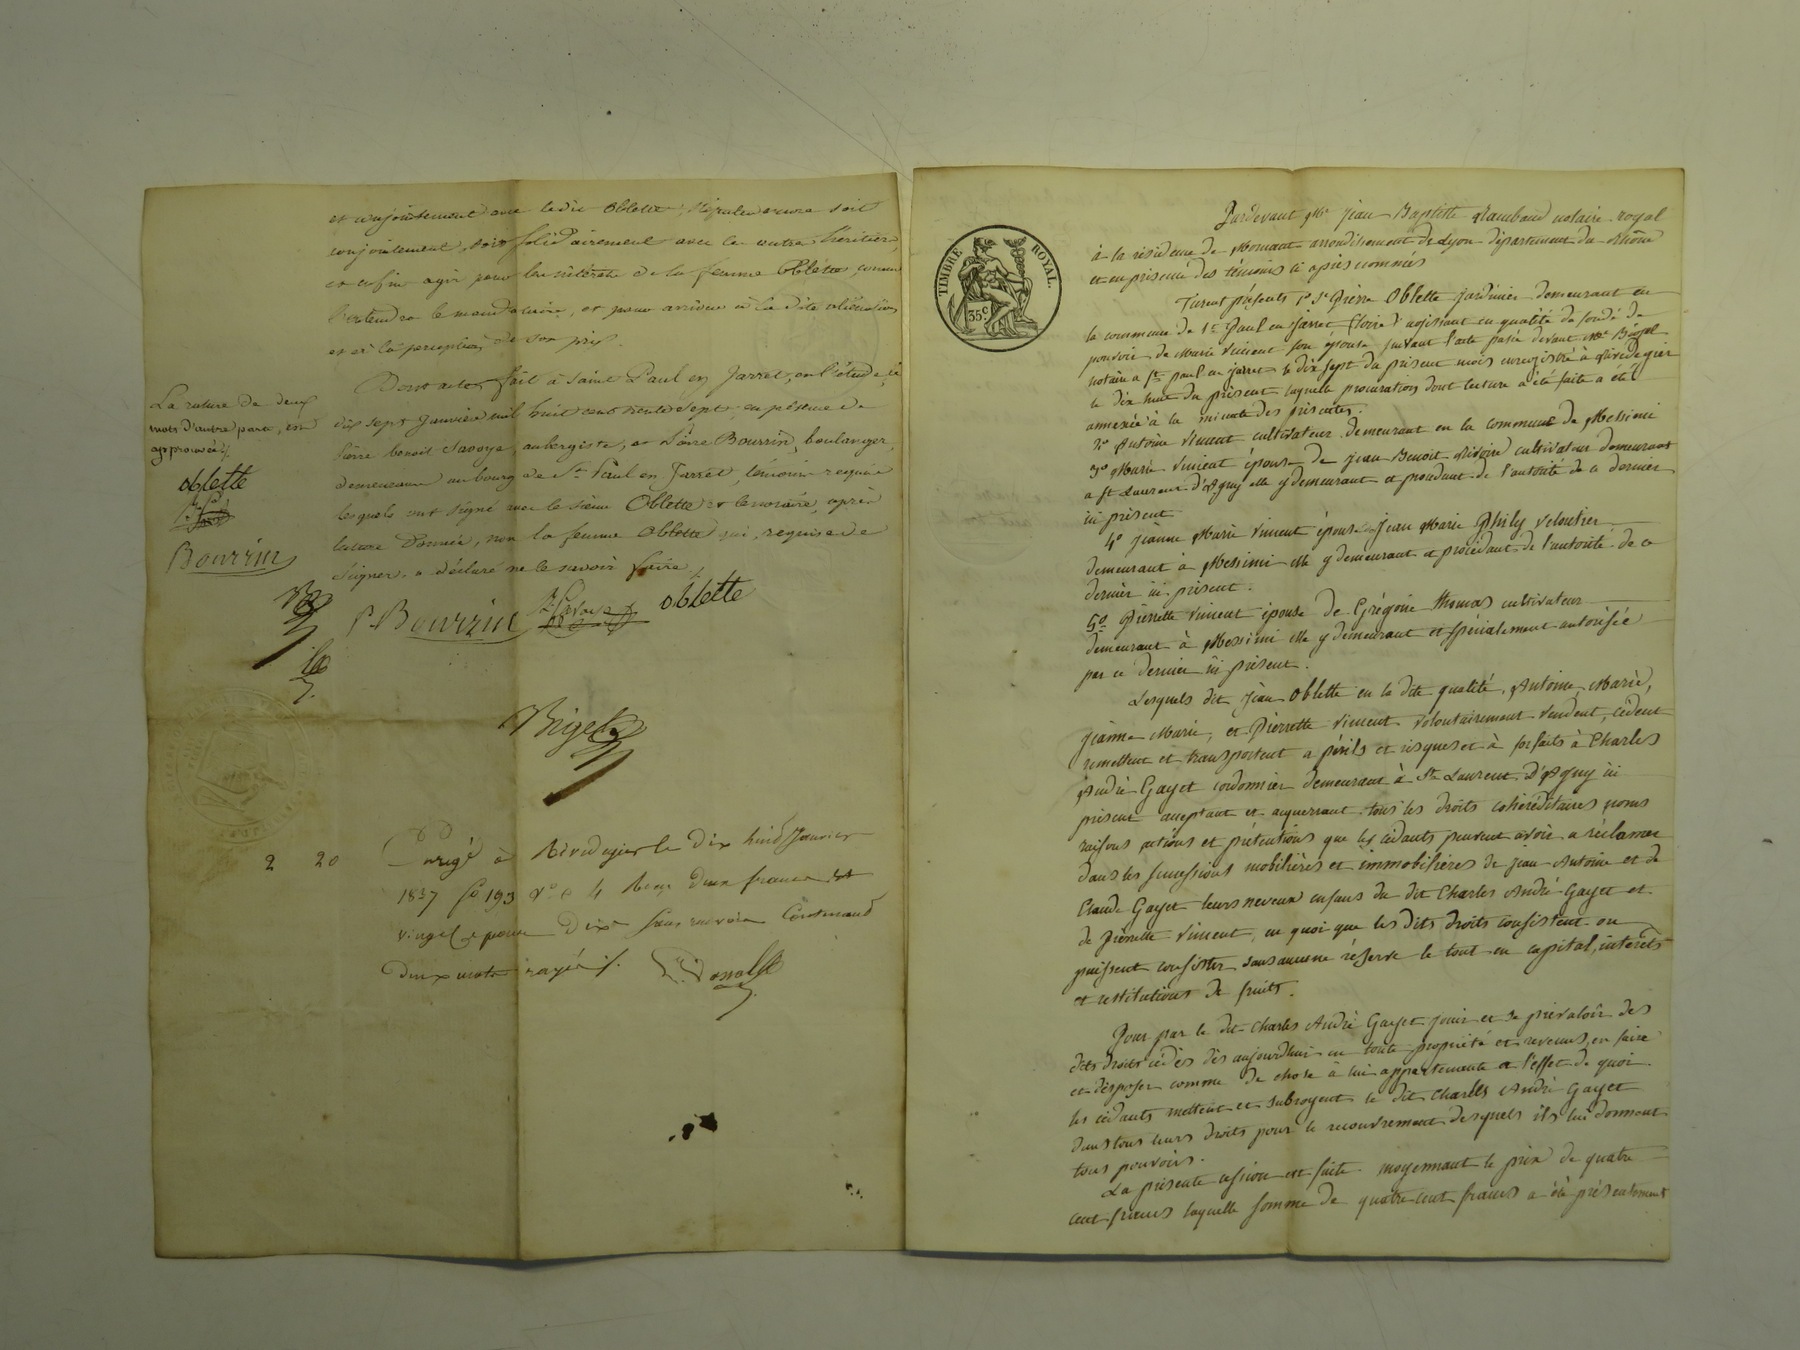 et conjointement avec le dit Oblette, stipuler encore soit
conjointement, soit solidairement avec les autres héritiers,
et enfin agir pour les intérêts de la femme Oblette, comme
l'entendra le mandataire, et pour arriver à la dite aliénation
et à la perception de son prix.
Dont acte, fait à Saint Paul en Jarret, en l'étude, le
dix sept Janvier mil huit cent trente sept, en présence de
Pierre benoit Savoye, aubergiste, et Pierre Bourrin, boulanger,
demeurant au bourg de St Paul en Jarret, témoins requis
lesquels ont signé avec le sieur Oblette et le notaire, après
lecture donnée, non la femme Oblette qui, requise de
signer, a déclaré ne le savoir faire.
La rature de deux
mots d'autre part, est
approuvée.
oblette
Bourrin
P. Bourrin
B. Savoye
oblette
Bigel
2 20
Enregé à Rivedegier le dix huit Janvier
1837 fo 193 Vo c 4 Reçu deux francs
vingt c pour dixe sans renvoi
deux mots rayés.
TIMBRE ROYAL.
35 c
Pardevant Me Jean Baptiste Raimbaud notaire royal
à la résidence de Mornant arrondissement de Lyon département du Rhône
et en présence des témoins ci après nommés
Furent présents 1o Sr Pierre Oblette Jardinier demeurant en
la commune de St Paul en Jarret (Loire) agissant en qualité de fondé de
pouvoir de Marie Vincent son épouse suivant l'acte passé devant Me Bigel
notaire a St paul en Jarret le dix sept du présent mois enregistré à Rivedegier
le dix huit du présent laquelle procuration dont lecture a été faite a été
annexée à la minute des présentes.
2o Antoine Vincent cultivateur demeurant en la commune de Messimi
3o Marie Vincent épouse de Jean Benoit Rivoire cultivateur demeurant
a St Laurent d'Agny elle y demeurant et procédant de l'autorité de ce dernier
ici présent
4o Jeanne Marie Vincent épouse Jean Marie Phily Veloutier
demeurant à Messimi elle y demeurant et procédant de l'autorité de ce
dernier ici présent.
5o Pierrette Vincent épouse de Grégoire Thomas cultivateur
demeurant à Messimi elle y demeurant et spécialement autorisée
par ce dernier ici présent.
Lesquels dit Jean Oblette en la dite qualité, Antoine, Marie,
Jeanne Marie, et Pierrette Vincent volontairement vendent, cèdent
remettent et transportent a périls et risques et à forfaits à Charles
André Gayet cordonnier demeurant à St Laurent D'Agny ici
présent acceptant et acquerrant tous les droits cohéréditaires noms
raisons actions et prétentions que les cédants peuvent avoir a réclamer
dans les successions mobilières et immobilières de Jean Antoine et de
Claude Gayet leurs neveux enfans du dit Charles André Gayet et
de Pierrette Vincent, en quoi que les dits droits consistent ou
puissent consister sans aucune réserve le tout en capital, intérêts
et restitutions de fruits.
Pour par le dit Charles André Gayet jouir et se prévaloir des
dits droits cédés dès aujourdhui en toute propriété et revenus, en faire
et disposer comme de chose à lui appartenante a l'effet de quoi
les cédants mettent et subrogent le dit Charles André Gayet
dans tous leurs droits pour le recouvrement desquels ils lui donnent
tous pouvoirs.
La présente cession est faite moyennant le prix de quatre
cent francs laquelle somme de quatre cent francs a été présentement